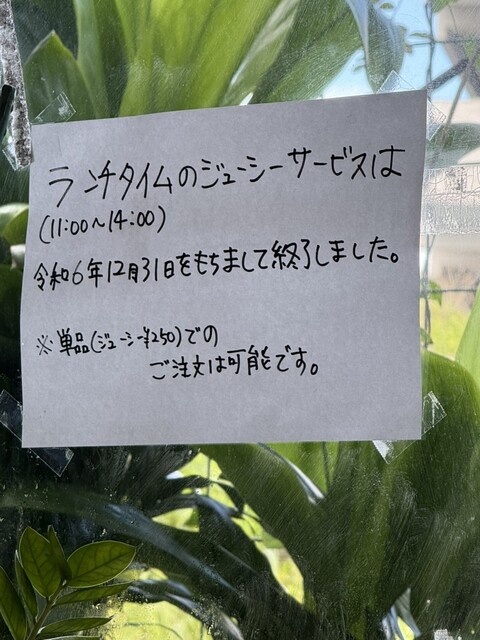 ランチタイムのジューシーサービスは
(11:00〜14:00)
令和6年12月31日をもちまして終了しました。
※単品(ジューシー¥250)での
ご注文は可能です。